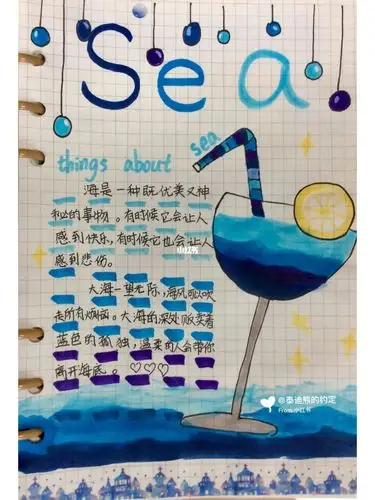 Sea
sea
things about
海是一种既优美又神
秘的事物。有时候它会让人
感到快乐,有时候它也会让人
感到悲伤。
大海一望无际,海风可以吹
走所有烦闷。大海的深处贩卖着
蓝色的孤独,温柔的人会带你
离开海底。♡♡♡
小红书
@泰迪熊的约定
From 小红书